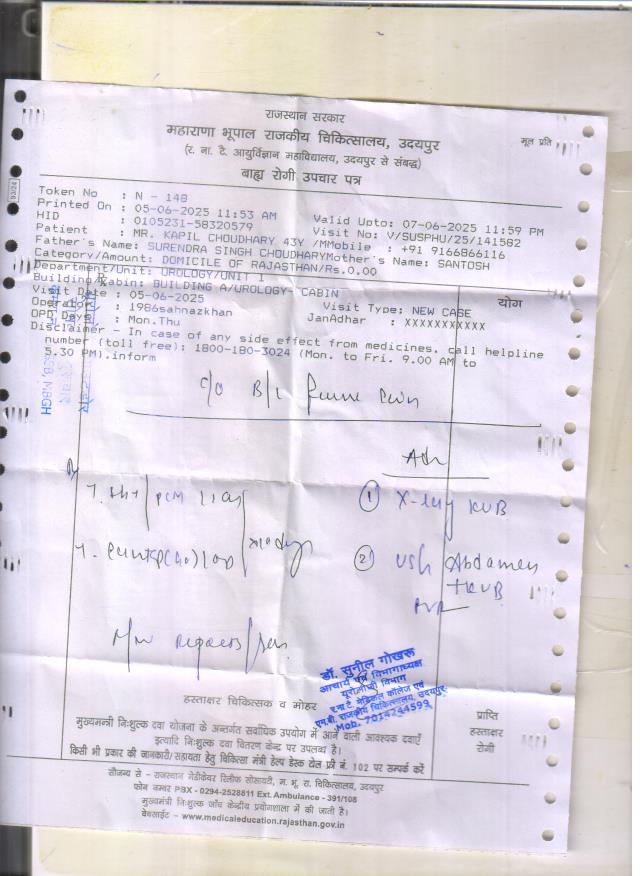 राजस्थान सरकार
महाराणा भूपाल राजकीय चिकित्सालय, उदयपुर
मूल प्रति
(र. ना. टै. आयुर्विज्ञान महाविद्यालय, उदयपुर से संबद्ध)
बाह्य रोगी उपचार पत्र
Token No : N - 148
Printed On : 05-06-2025 11:53 AM Valid Upto: 07-06-2025 11:59 PM
HID : 0105231-58320579 Visit No: V/SUSPHU/25/141582
Patient : MR. KAPIL CHOUDHARY 43Y /MMobile : +91 9166866116
Father's Name: SURENDRA SINGH CHOUDHARYMother's Name: SANTOSH
Category/Amount: DOMICILE OF RAJASTHAN/Rs.0.00
Department/Unit: UROLOGY/UNIT I
Building/Cabin: BUILDING A/UROLOGY- CABIN
योग
Visit Date : 05-06-2025 Visit Type: NEW CASE
Operator : 1986sahnazkhan
OPD Days : Mon.Thu JanAdhar : XXXXXXXXXXX
Disclaimer - In case of any side effect from medicines. call helpline
number (toll free): 1800-180-3024 (Mon. to Fri. 9.00 AM to
5.30 PM).inform
NBGH
c/o B/L
Adv
① X-ray KUB
② USG Abdomen
+ KUB
PVR
डॉ. सुनील गोखरू
आचार्य एवं विभागाध्यक्ष
यूरोलॉजी विभाग
र.ना.टै. मेडिकल कॉलेज एवं
एम.बी. राजकीय चिकित्सालय, उदयपुर
Mob. 7014244599
हस्ताक्षर चिकित्सक व मोहर
प्राप्ति
हस्ताक्षर
रोगी
मुख्यमन्त्री निःशुल्क दवा योजना के अन्तर्गत सर्वाधिक उपयोग में आने वाली आवश्यक दवाएँ
इत्यादि निःशुल्क दवा वितरण केन्द्र पर उपलब्ध है।
किसी भी प्रकार की जानकारी/सहायता हेतु चिकित्सा मंत्री हेल्प डेस्क टोल फ्री नं. 102 पर सम्पर्क करें
सौजन्य से - राजस्थान मेडीकेयर रिलीफ सोसायटी, म. भू. रा. चिकित्सालय, उदयपुर
फोन नम्बर PBX - 0294-2528811 Ext. Ambulance - 391/108
मुख्यमंत्री निःशुल्क जाँच केन्द्रीय प्रयोगशाला में की जाती है।
वेबसाईट - www.medicaleducation.rajasthan.gov.in